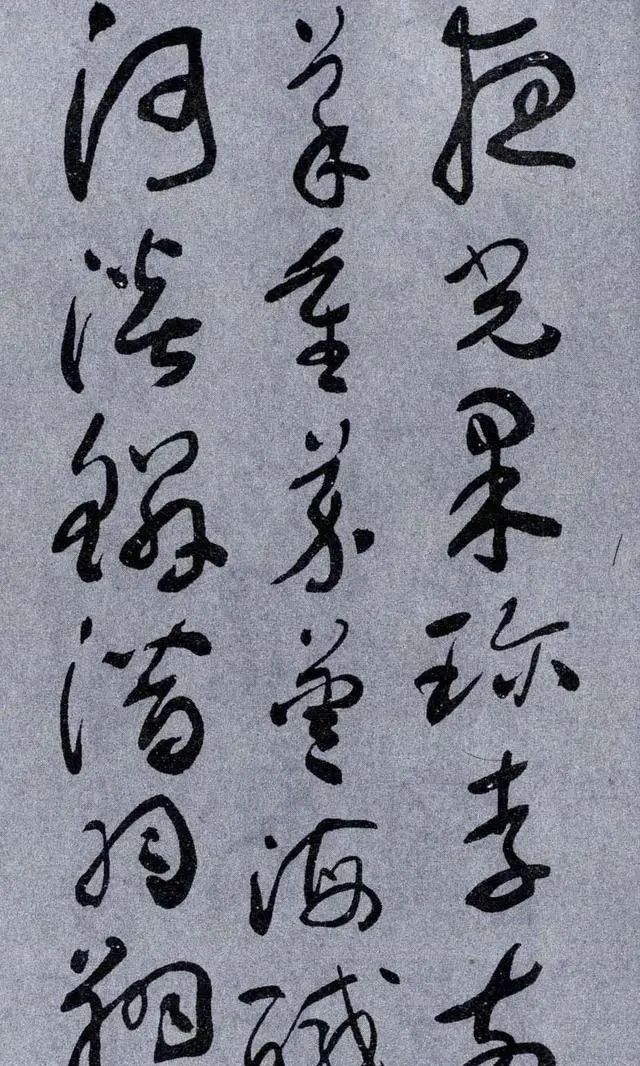 夜光果珍李柰
菜重芥薑海醎
河淡鱗潛羽翔